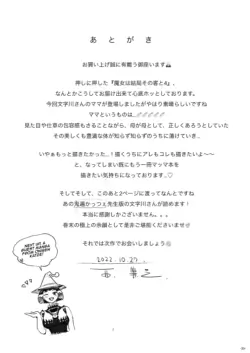 あとがき
お買い上げ誠に有難う御座います
押しに押した『魔女は結局その者と4』、
なんとかこうしてお届け出来て心底ホッとしております。
今回文字川さんのママが登場しましたがやはり素晴らしいですね
ママというものは…
見た目や仕草の包容感もさることながら、母が母として、正しくあろうとしていた
その美しくも豊満な体が知らず知らずのうちに蕩けていき…
いやぁもっと描きたかった…！描くうちにアレもコレも描きたいよ〜〜
と、なってしまい既にもう一冊マッママ本を
描きたい気持ちになっております。
そしてそして、このあと2ページに渡ってなんと
あの鬼遍かっつぇ先生版の文字川さんが読めます！
本当に感謝しかございません。
巻末の極上の余韻として是非ご堪能くださいませ
それでは次作でお会いしましょう
2022.10.27
NEXT UP A
GUEST MANGA
FROM ONIHEN
KATZE!